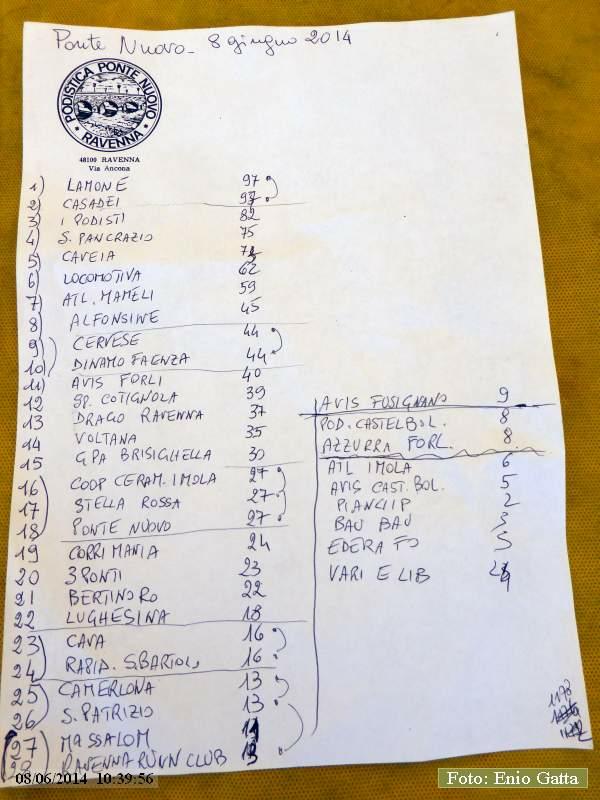 Ponte Nuovo - 8 giugno 2014
PODISTICA PONTE NUOVO
RAVENNA
48100 RAVENNA
Via Ancona
1) LAMONE 97
2) CASADEI 97
3) I PODISTI 82
4) S. PANCRAZIO 75
5) CAVEIA
6) LOCOMOTIVA 62
7) ATL. MAMELI 59
8) ALFONSINE 45
9) CERVESE 44
10) DINAMO FAENZA 44
11) AVIS FORLI 40
12 GP. COTIGNOLA 39
13 DRAGO RAVENNA 37
14 VOLTANA 35
15 GPA BRISIGHELLA 30
16) COOP CERAM. IMOLA 27
17) STELLA ROSSA 27
18) PONTE NUOVO 27
19 CORRI MANIA 24
20 3 PONTI 23
21 BERTINORO 22
22 LUGHESINA 18
23) CAVA 16
24) RAPID. S.BARTOL. 16
25) CAMERLONA 13
26) S. PATRIZIO 13
27) MASSALOM
28 RAVENNA RUNN CLUB
AVIS FUSIGNANO 9
POD. CASTELBOL. 8
AZZURRA FORL. 8
ATL IMOLA 6
AVIS CAST. BOL. 5
2
BAU BAU 3
EDERA FO 5
VARI E LIB
1178
08/06/2014 10:39:56
Foto: Enio Gatta